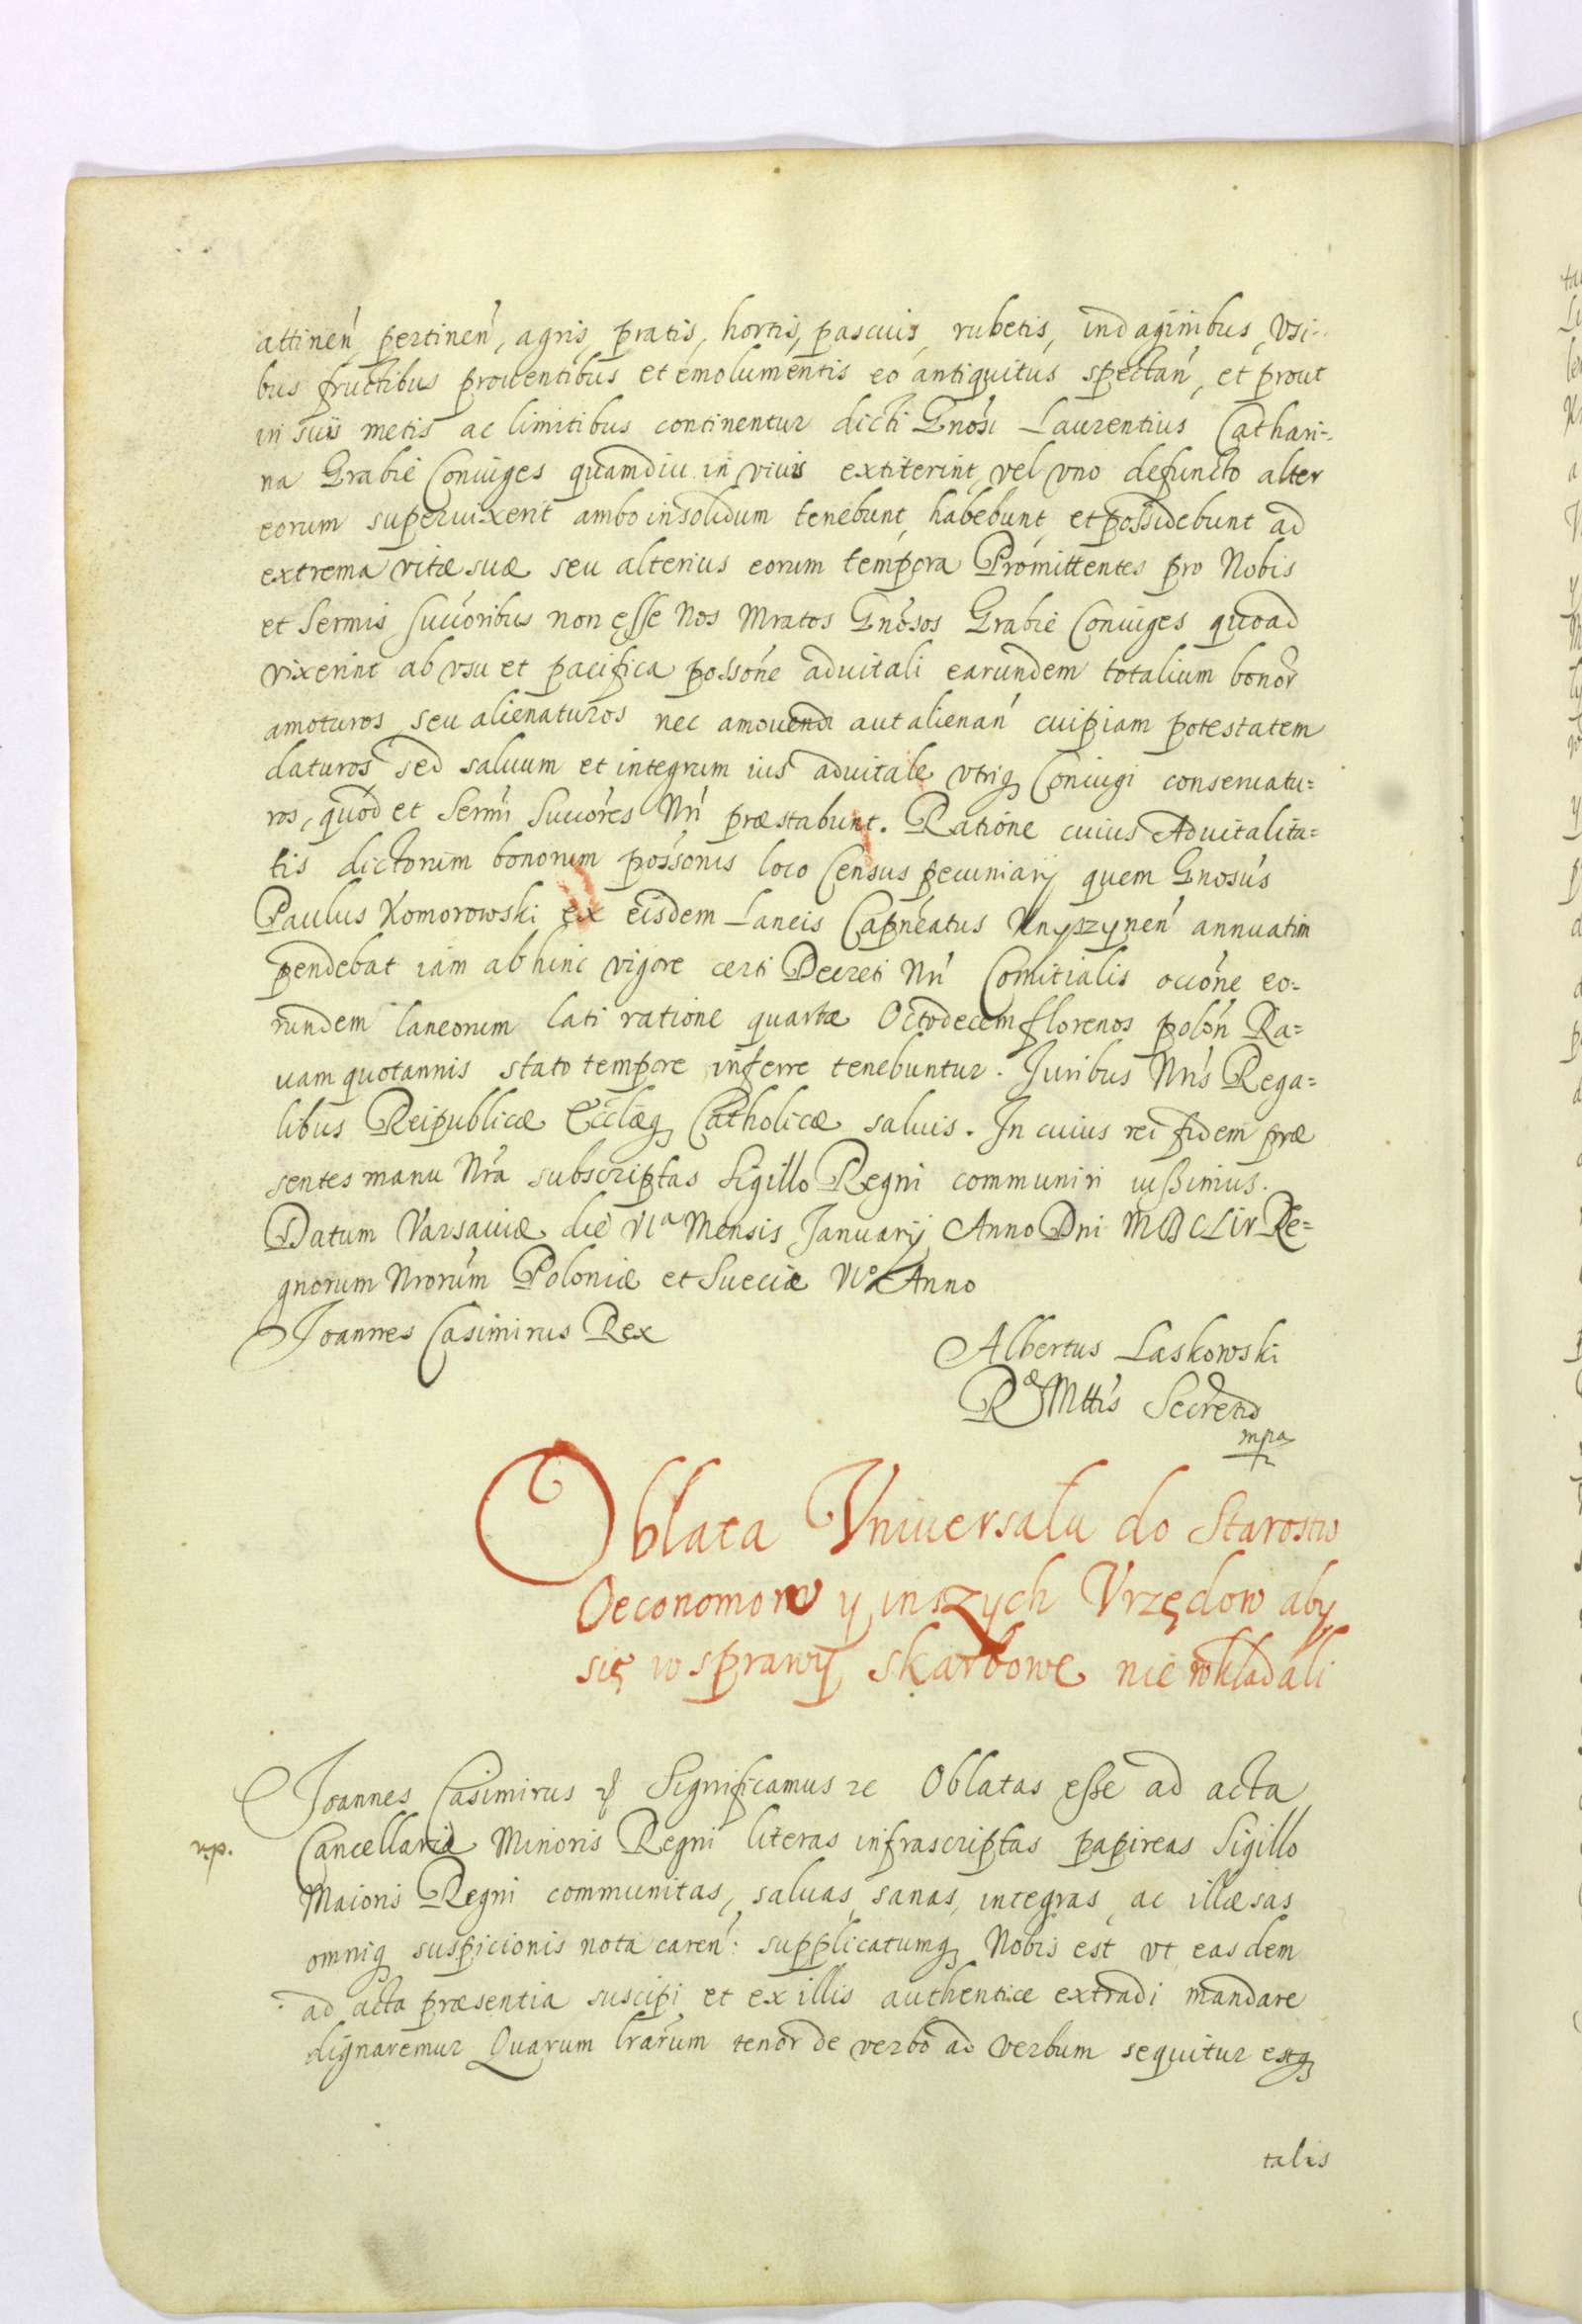 attineń pertineń, agris, pratis, hortis, pascuis, rubetis, indaginibus, vsi-
bus fructibus prouentibus et emolumentis eo antiquitus spectań, et prout
in suis metis ac limitibus continentur dicti Gnosi Laurentius Cathari-
na Grabie Coniuges quamdiu in viuis extiterint, vel vno defuncto alter
eorum superuixerit ambo insolidum tenebunt, habebunt, et possidebunt ad
extrema vitæ suæ seu alterius eorum tempora Promittentes pro Nobis
et Sermis Succoribus non esse Nos Mratos Gnosos Grabie Coniuges quoad
vixerint ab vsu et pacifica possone aduitali earundem totalium bonor
amoturos seu alienaturos nec amouendi aut alienań cuipiam potestatem
daturos sed saluum et integrum ius aduitale vtriq Coniugi conseruatu=
ros, quod et Sermi Succores Nri præstabunt. Ratione cuius Aduitalita=
tis dictorum bonorum possonis loco Census pecuniarij quem Gnosus
Paulus Komorowski ex eisdem Laneis Capneatus Knyszyneń annuatim
pendebat iam abhinc vigore certi Decreti Nri Comitialis occone eo-
rundem laneorum lati ratione quartæ Octodecem florenos polon Ra=
uam quotannis stato tempore inferre tenebuntur. Juribus Nris Rega=
libus Reipublicæ Eccliæq Catholicæ saluis. In cuius rei fidem præ
sentes manu Nra subscriptas Sigillo Regni communiri iußimus.
Datum Varsauiæ die VIa Mensis Januarij Anno Dni MDCLIV Re=
gnorum Nrorum Poloniæ et Sueciæ VIo Anno
Joannes Casimirus Rex
Albertus Laskowski
Ræ Mttis Secret
mpa
Oblata Vniuersału do Starostw
Oeconomow y inszych Vrzędow aby
się w sprawy skarbowe nie wkładali
Joannes Casimirus Significamus Oblatas esse ad acta
Cancellariæ Minoris Regni literas infrascriptas papireas Sigillo
Maioris Regni communitas, saluas, sanas, integras, ac illæsas
omniq suspicionis nota careń: supplicatumq Nobis est vt easdem
ad acta præsentia suscipi et ex illis authentice extradi mandare
dignaremur Quarum lrarum tenor de verbo ad verbum sequitur estq
talis